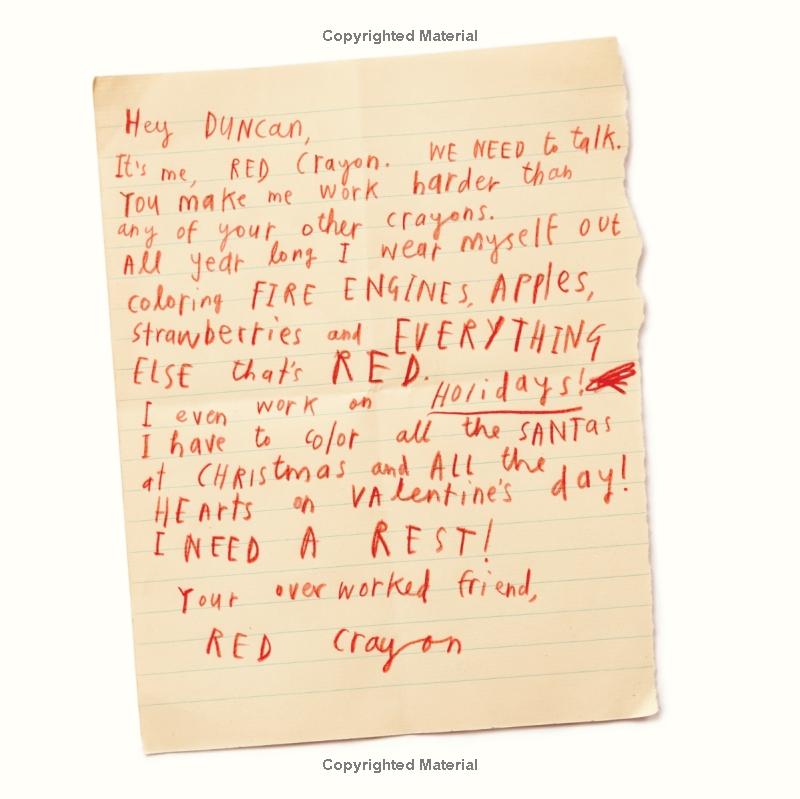 Copyrighted Material
Hey DUNCan,
It's me, RED Crayon. WE NEED to talk.
You make me work harder than
any of your other crayons.
All year long I wear myself out
coloring FIRE ENGINES, APPles,
strawberries and EVERYTHING
ELSE that's RED.
I even work on Holidays!
I have to color all the SANTas
at CHRIStmas and ALL the
HEArts on VAlentine's day!
I NEED A REST!
Your overworked friend,
RED Crayon
Copyrighted Material